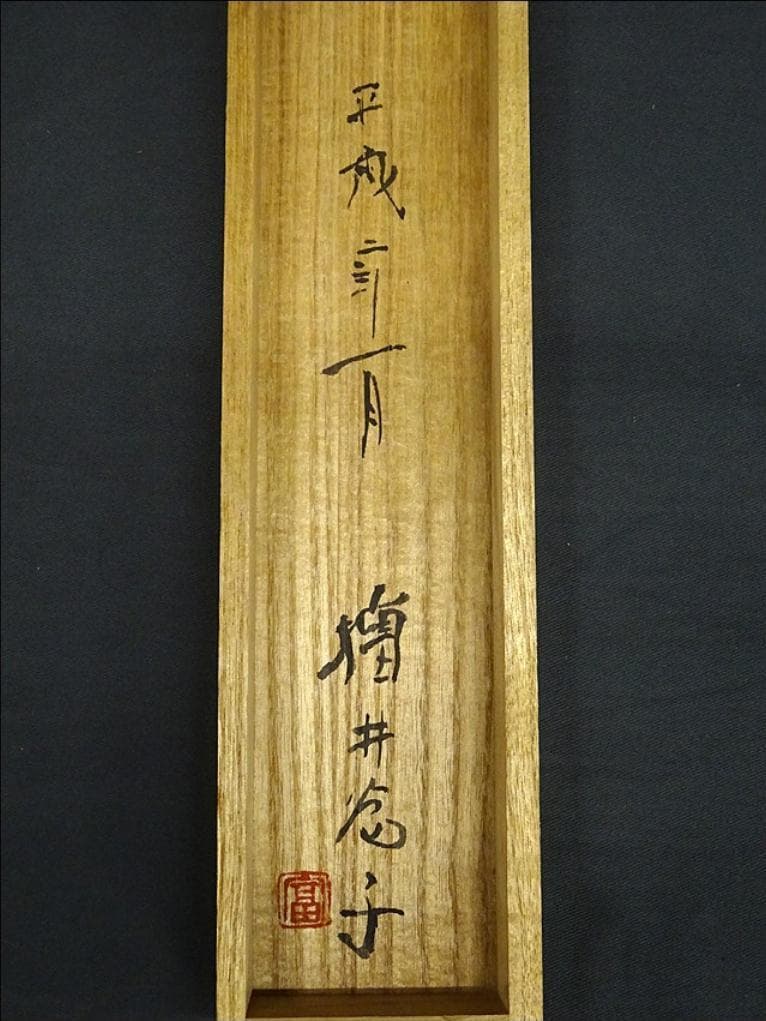 平成二年一月
増井富子
富